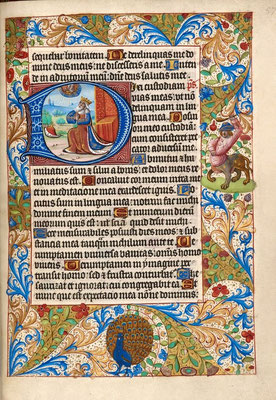 sequebar bonitatem Ne derelinquas me do
mine deus meus: ne discesseris a me. In
tende in adiutoriū meū: dñe deus salutis mee.
D ixi custodiam ps
vias meas: ut nō
meo
meo custodiam:
me. Posui
meum
et silui a bonis: et dolor meus re
novatus est. Concaluit cor meum intra me
et in meditatione mea exardescet ignis. Lo
cutus sum in lingua mea: notum fac michi
domine finem meum Et numerum dierū
meorum quis est: ut sciam quid desit michi
posuisti dies meos: et sub
stantia mea tanquam nichilum ante te
rumptamen universa vanitas: omnis homo
vivens Verumptamen in ymagine per
transit homo: sed et frustra conturbatur. The
saurizat et ignorat: cui congregabit ea Et
nunc que est expectacio mea nonne dominus: